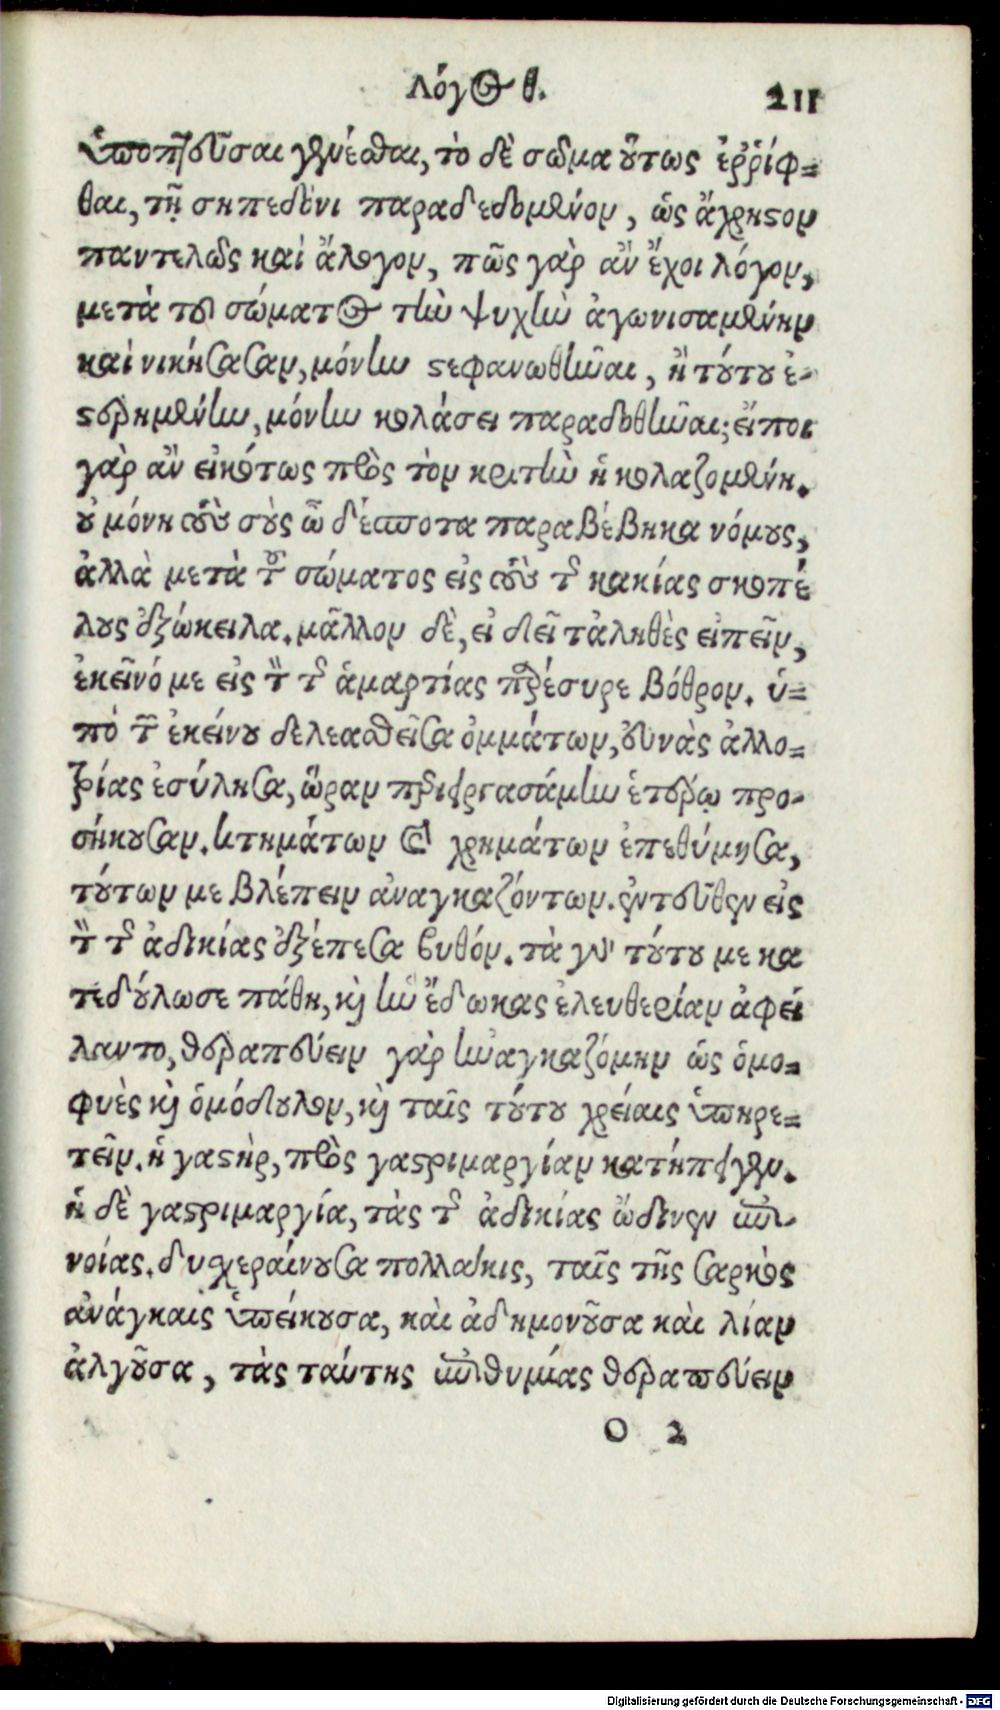 Λόγος θ. 211
ὑποπτεῦσαι γενέσθαι, τὸ δὲ σῶμα οὕτως ἐῤῥίφ-
θαι, τῇ σηπεδόνι παραδεδομένον, ὡς ἄχρηστον
παντελῶς καὶ ἄλογον, πῶς γὰρ ἂν ἔχοι λόγον,
μετὰ τοῦ σώματος τὴν ψυχὴν ἀγωνισαμένην
καὶ νικήσασαν, μόνην στεφανωθῆναι, ἢ τούτου ἐ-
στερημένην, μόνην κολάσει παραδοθῆναι; εἴποι
γὰρ ἂν εἰκότως πρὸς τὸν κριτὴν ἡ κολαζομένη.
οὐ μόνη τοὺς σοὺς ὦ δέσποτα παραβέβηκα νόμους,
ἀλλὰ μετὰ τοῦ σώματος εἰς τοὺς τῆς κακίας σκοπέ
λους ἐξώκειλα. μᾶλλον δὲ, εἰ δεῖ τἀληθὲς εἰπεῖν,
ἐκεῖνό με εἰς τὸν τῆς ἁμαρτίας παρέσυρε βόθρον. ὑ-
πὸ τῶν ἐκείνου δελεασθεῖσα ὀμμάτων, εὐνὰς ἀλλο-
τρίας ἐσύλησα, ὥραν περιεργασάμην ἑτέρῳ προ-
σήκουσαν. κτημάτων καὶ χρημάτων ἐπεθύμησα,
τούτων με βλέπειν ἀναγκαζόντων. ἐντεῦθεν εἰς
τὸν τῆς ἀδικίας ἐξέπεσα βυθόν. τὰ γὰρ τούτου με κα
τεδούλωσε πάθη, καὶ ἣν ἔδωκας ἐλευθερίαν ἀφεί
λαντο, θεραπεύειν γὰρ ἠναγκαζόμην ὡς ὁμο-
φυὲς καὶ ὁμόδουλον, καὶ ταῖς τούτου χρείαις ὑπηρε-
τεῖν. ἡ γαστὴρ, πρὸς γαστριμαργίαν κατήπειγεν.
ἡ δὲ γαστριμαργία, τὰς τῆς ἀδικίας ὤδινεν ἐπι-
νοίας. δυσχεραίνουσα πολλάκις, ταῖς τῆς σαρκὸς
ἀνάγκαις ὑπείκουσα, καὶ ἀδημονοῦσα καὶ λίαν
ἀλγοῦσα, τὰς ταύτης ἐπιθυμίας θεραπεύειν
O 2
Digitalisierung gefördert durch die Deutsche Forschungsgemeinschaft - DFG